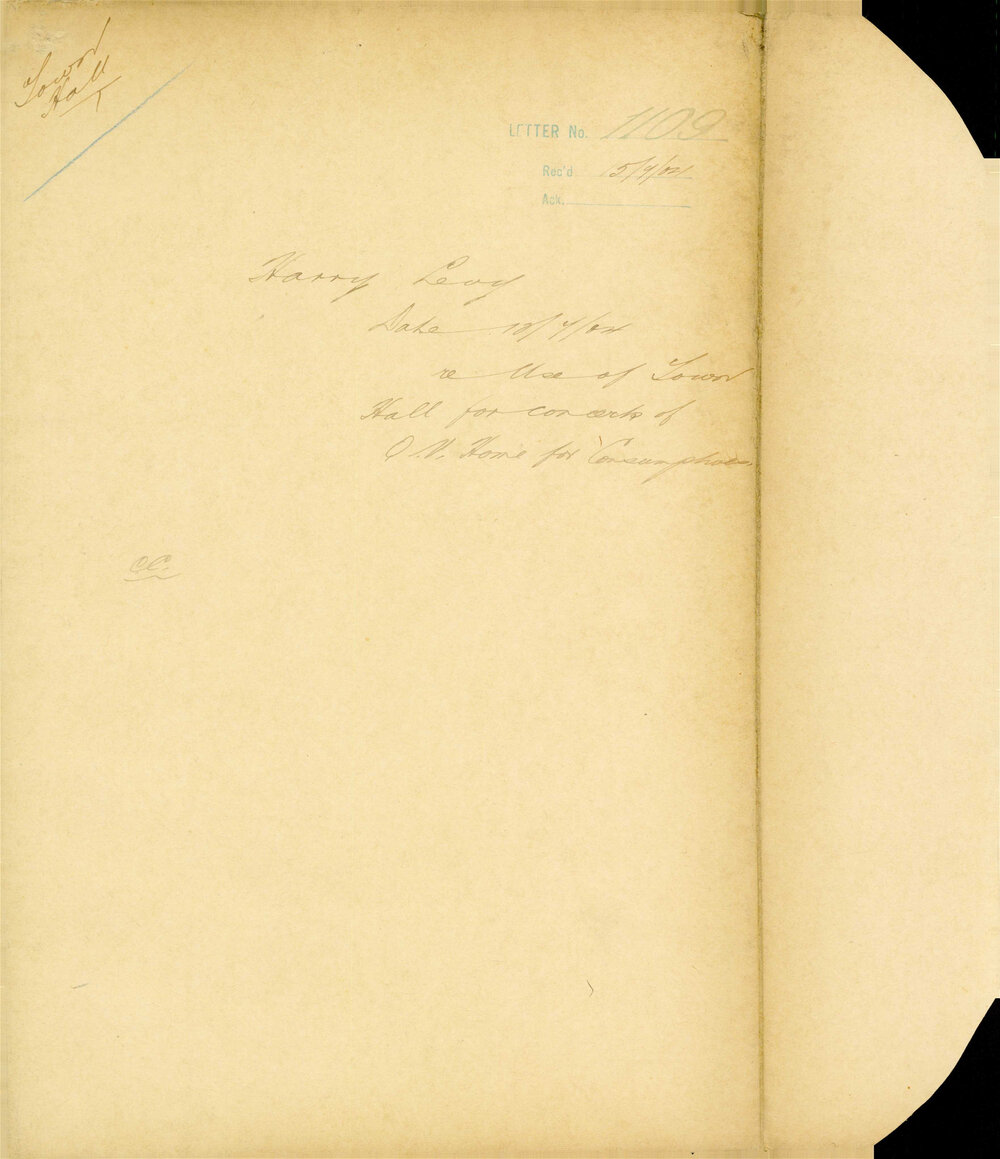 Town
Hall
LETTER No. 1109
Rec'd 15/4/04
Ack.
Harry Levy
Date 13/4/04
re Use of Town
Hall for concerts of
Q.V. Home for Consumptives
C.C.